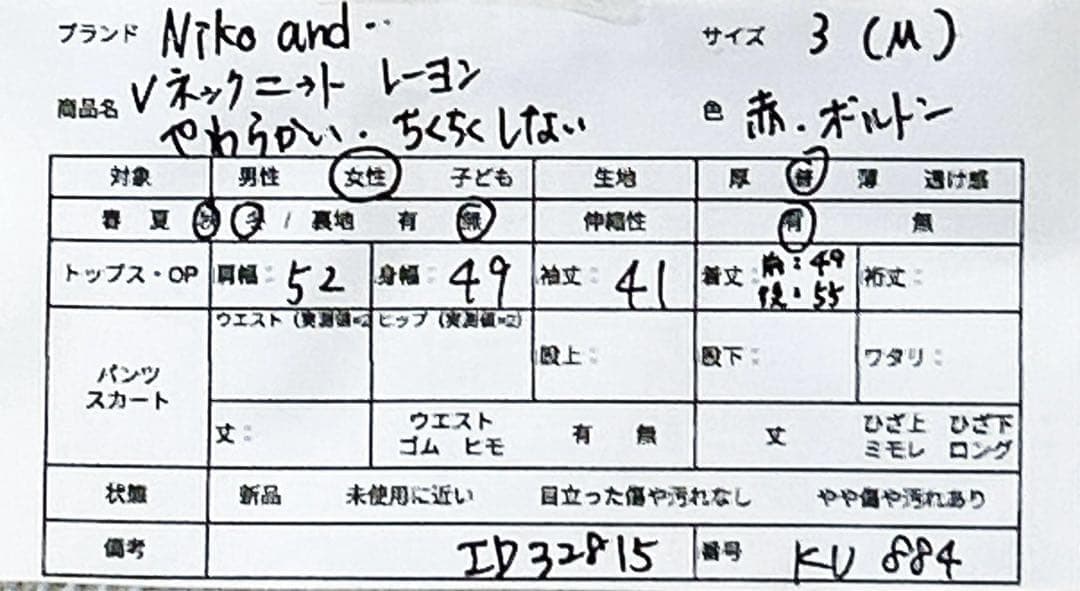 ブランド Niko and… サイズ 3 (M)
商品名 Vネックニット レーヨン
やわらかい・ちくちくしない 色 赤・ボルドン
対象 男性 女性 子ども 生地 厚 普 薄 透け感
春 夏 秋 冬 / 裏地 有 無 伸縮性 有 無
トップス・OP 肩幅: 52 身幅: 49 袖丈: 41 着丈: 前:49 裄丈:
後:55
ウエスト (実測値×2) ヒップ (実測値×2)
パンツ 股上: 股下: ワタリ:
スカート
丈: ウエスト 有 無 丈 ひざ上 ひざ下
ゴム ヒモ ミモレ ロング
状態 新品 未使用に近い 目立った傷や汚れなし やや傷や汚れあり
備考 ID32815 番号 KU 884